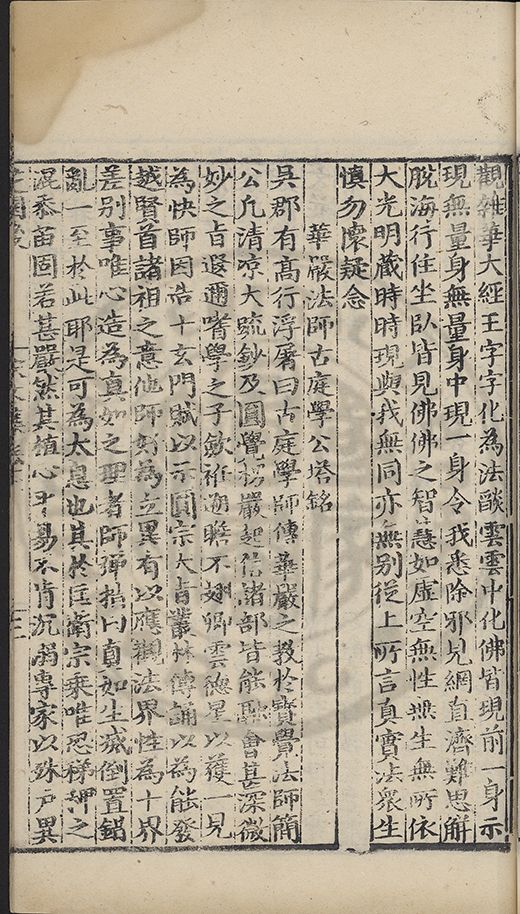 觀雜華大經王字字化為法談雲雲中化佛皆現前一身示
現無量身無量身中現一身令我悉除邪見網直濟難思解
脫海行住坐臥皆見佛佛之智慧如虛空無性無生無所依
大光明藏時時現與我無同亦無別從上所言真實法衆生
慎勿懷疑念
華嚴法師古庭學公塔銘
吳郡有高行浮屠曰古庭學師傳華嚴之教於寶覺法師簡
公凡清涼大疏鈔及圓覺楞嚴起信諸部皆能融會甚深微
妙之旨遐邇嗜學之子斂袵遡瞻不翅卿雲德星以獲一見
為快師因造十玄門賦以示圓宗大旨叢林傳誦以為能發
越賢首諸祖之意他師好為立異有以應觀法界性為十界
差別事唯心造為真如之理者師彈指曰真如生滅倒置錯
亂一至於此耶是可為太息也其於匡衛宗乘唯恐稊稗之
混黍苗固若甚嚴然其植心平易不肯沉溺專家以殊戶異